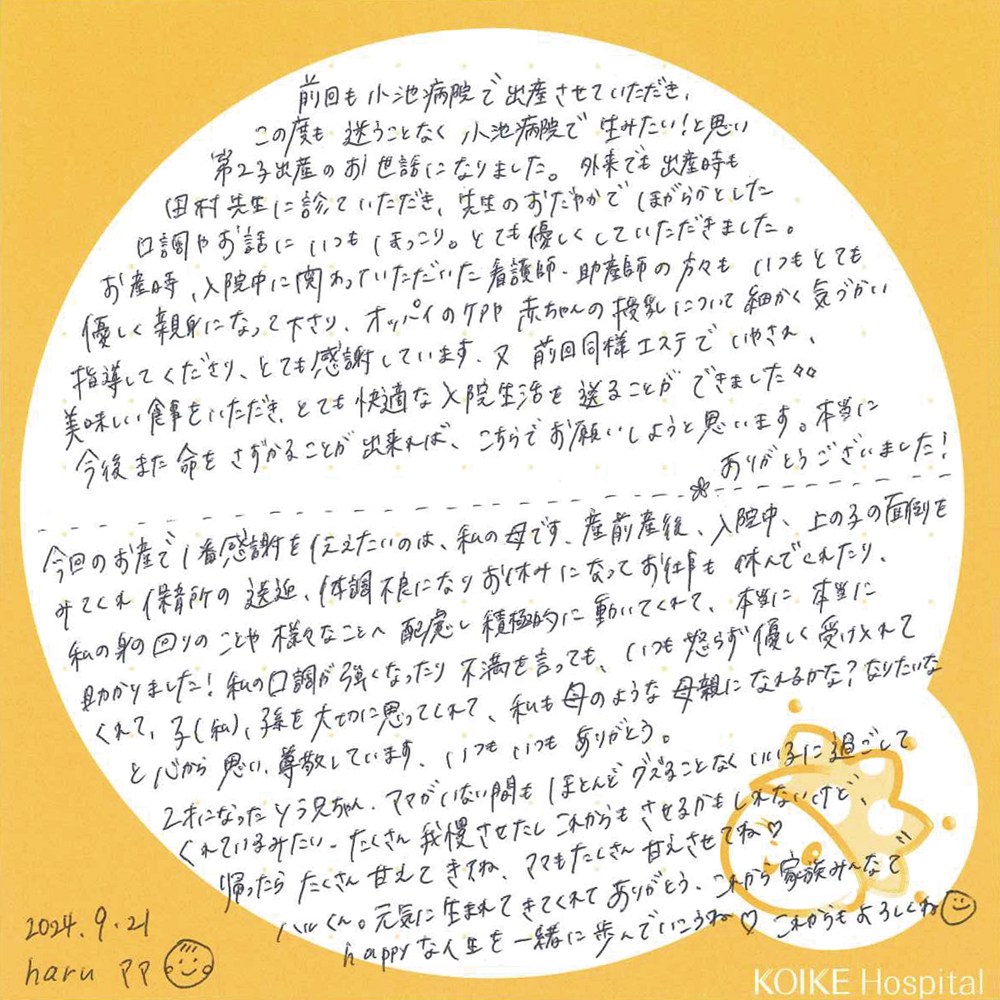 前回も小池病院で出産させていただき、
この度も迷うことなく小池病院で生みたい！と思い
第2子出産のお世話になりました。外来でも出産時も
田村先生に診ていただき、先生のおだやかでほがらかとした
口調やお話にいつもほっこり。とても優しくしていただきました。
お産時、入院中に関わっていただいた看護師・助産師の方々もいつもとても
優しく親身になって下さり、オッパイのケアや赤ちゃんの授乳について細かく気づかい
指導してくださり、とても感謝しています。又前回同様エステでいやされ、
美味しい食事をいただき、とても快適な入院生活を送ることができました
今後また命をさずかることが出来れば、こちらでお願いしようと思います。本当に
ありがとうございました！
今回のお産で1番感謝を伝えたいのは、私の母です。産前産後、入院中、上の子の面倒を
みてくれ保育所の送迎、体調不良になりお休みになってお仕事も休んでくれたり、
私の身の回りのことや様々なことへ配慮し積極的に動いてくれて、本当に本当に
助かりました！私の口調が強くなったり不満を言っても、いつも怒らず優しく受け入れて
くれて、子(私)、孫を大切に思ってくれて、私も母のような母親になれるかな？なりたいな
と心から思い、尊敬しています。いつもいつもありがとう。
2才になったそう兄ちゃん。ママがいない間もほとんどグズることなくいい子に過ごして
くれているみたい。たくさん我慢させたしこれからもさせるかもしれないけど、
帰ったらたくさん甘えてきてね、ママもたくさん甘えさせてね♡
ハルくん。元気に生まれてきてくれてありがとう、これから家族みんなで
happyな人生を一緒に歩んでいこうね♡これからもよろしくね
2024.9.21
haru ママ
KOIKE Hospital